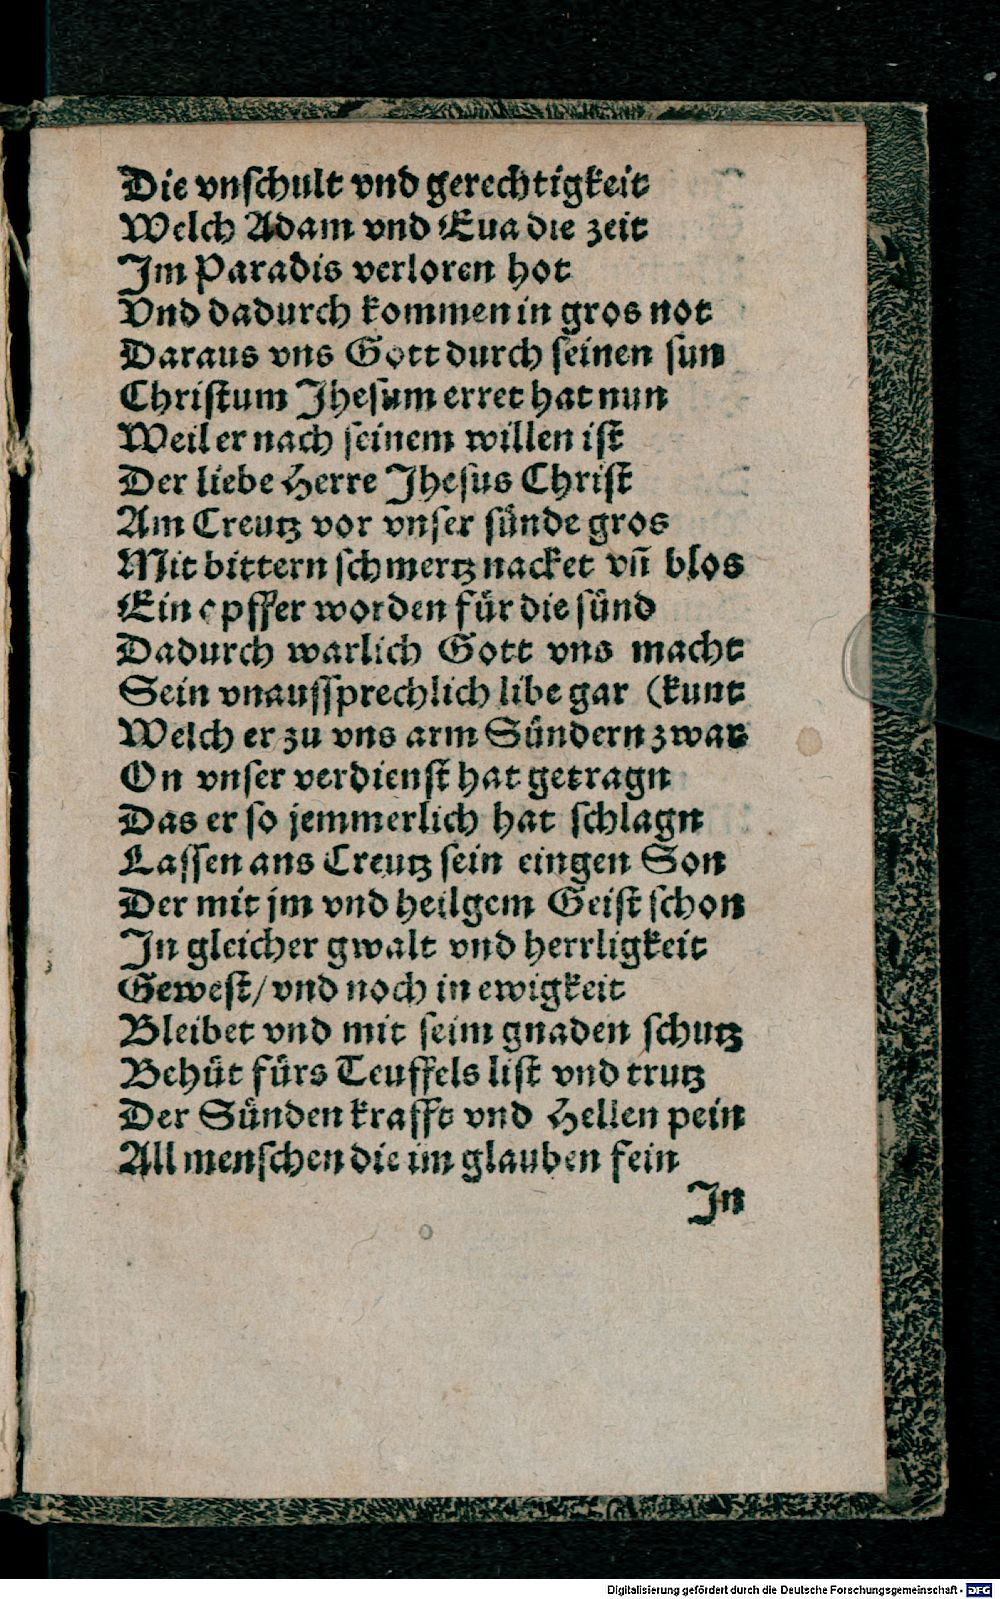 Die vnschult vnd gerechtigkeit
Welch Adam vnd Eua die zeit
Im Paradis verloren hot
Vnd dadurch kommen in gros not
Daraus vns Gott durch seinen sun
Christum Jhesum erret hat nun
Weil er nach seinem willen ist
Der liebe Herre Jhesus Christ
Am Creutz vor vnser sünde gros
Mit bittern schmertz nacket vñ blos
Ein opffer worden für die sünd
Dadurch warlich Gott vns macht
Sein vnaussprechlich libe gar (kunt
Welch er zu vns arm Sündern zwar
On vnser verdienst hat getragn
Das er so jemmerlich hat schlagn
Lassen ans Creutz sein eingen Son
Der mit jm vnd heilgem Geist schon
In gleicher gwalt vnd herrligkeit
Gewest/ vnd noch in ewigkeit
Bleibet vnd mit seim gnaden schutz
Behüt fürs Teuffels list vnd trutz
Der Sünden krafft vnd Hellen pein
All menschen die im glauben fein
In
Digitalisierung gefördert durch die Deutsche Forschungsgemeinschaft - DFG